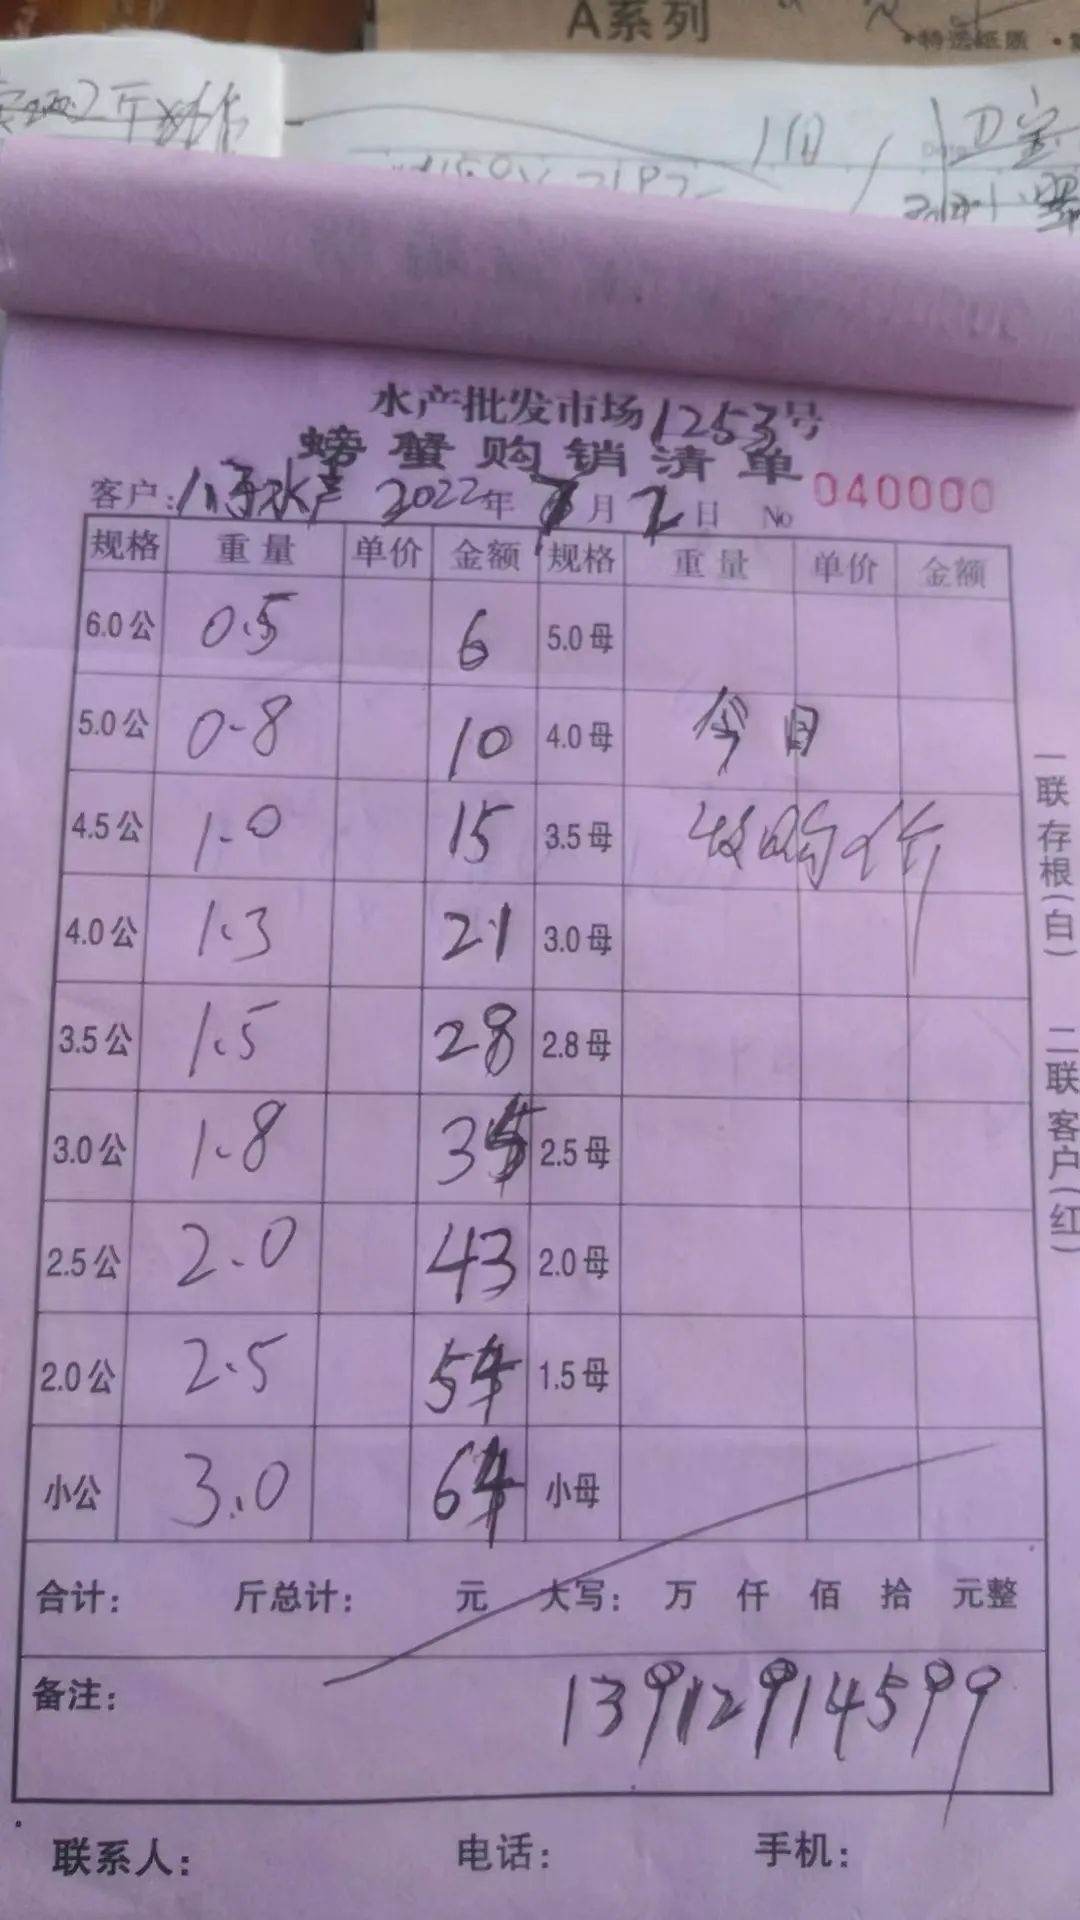 A系列
•特选纸质
118
卫宝
水产批发市场1253号
螃蟹购销清单
客户: 水产 2022年7月2日 No 040000
规格 重量 单价 金额 规格 重量 单价 金额
6.0公 0.5 6 5.0母
5.0公 0-8 10 4.0母 今日
4.5公 1-0 15 3.5母 收购价
4.0公 1.3 21 3.0母
3.5公 1.5 28 2.8母
3.0公 1.8 35 2.5母
2.5公 2.0 43 2.0母
2.0公 2.5 54 1.5母
小公 3.0 64 小母
合计: 斤总计: 元 大写: 万 仟 佰 拾 元整
备注: 13912914599
联系人: 电话: 手机:
一联存根(白)
二联客户(红)